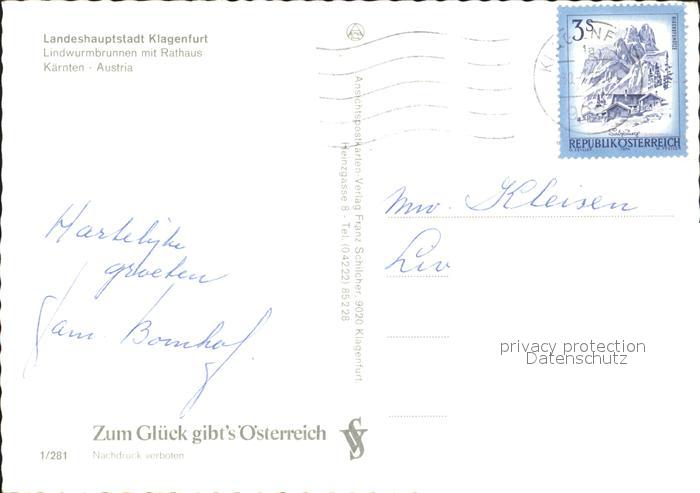 Landeshauptstadt Klagenfurt
Lindwurmbrunnen mit Rathaus
Kärnten - Austria
3S
Salzburg
REPUBLIK ÖSTERREICH
Ansichtspostkarten-Verlag Franz Schilcher, 9020 Klagenfurt,
Heinzgasse 8 - Tel. (0 42 22) 85 2 28
Mw. Kleisen
Liv
Hartelijke
groeten
fam. Bomhof
privacy protection
Datenschutz
Zum Glück gibt's Österreich
1/281 Nachdruck verboten